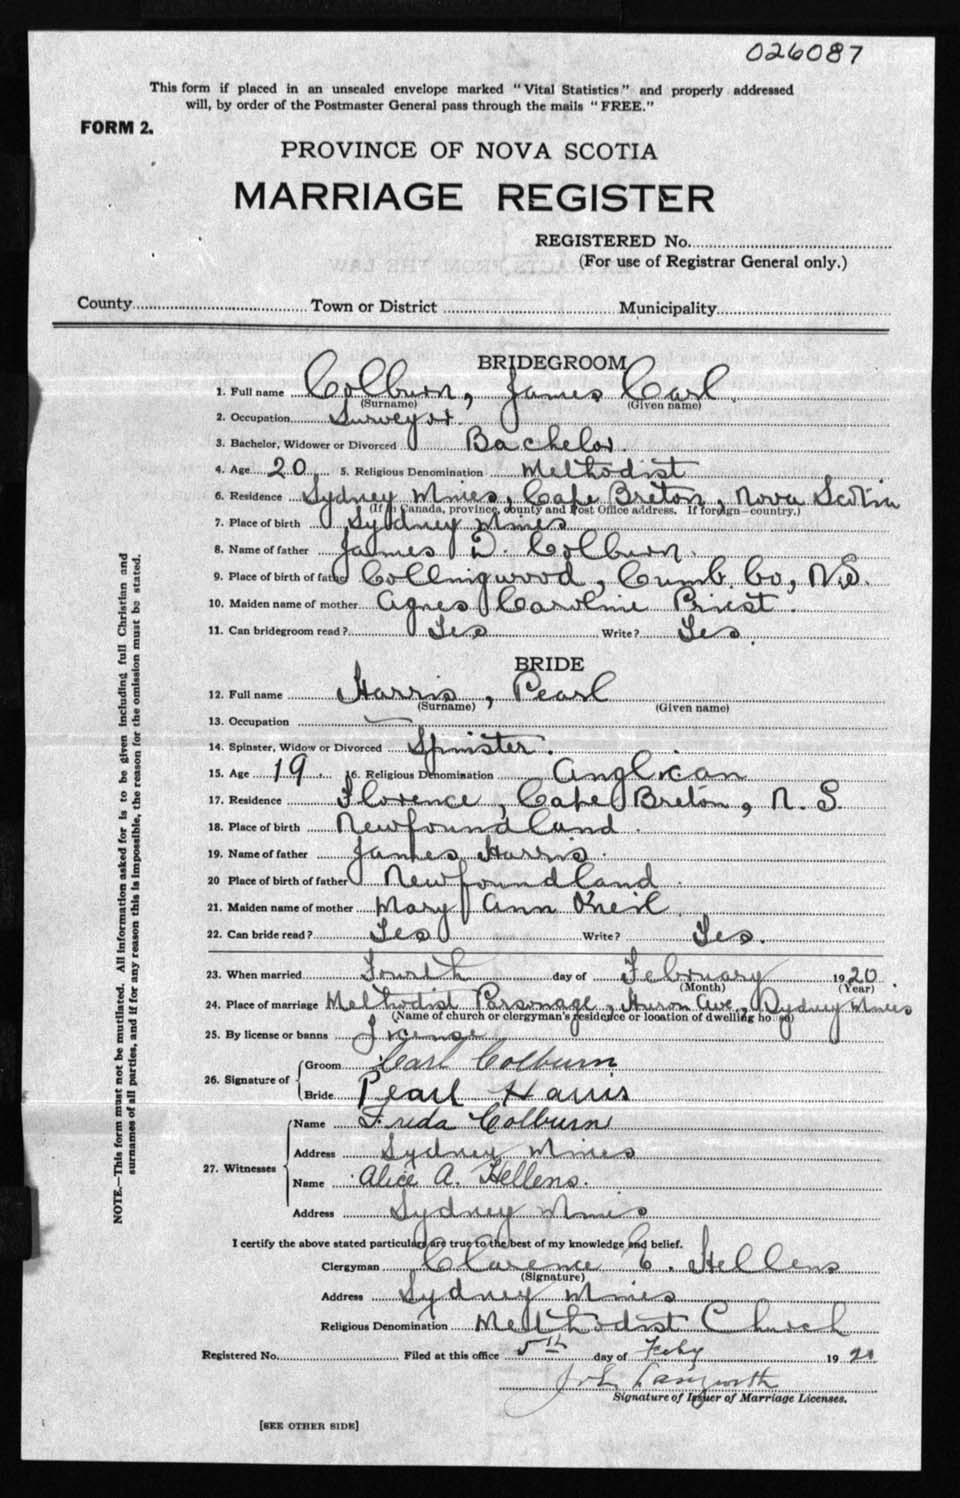 026087
This form if placed in an unsealed envelope marked "Vital Statistics" and properly addressed
will, by order of the Postmaster General pass through the mails "FREE."
FORM 2.
PROVINCE OF NOVA SCOTIA
MARRIAGE REGISTER
REGISTERED No.
(For use of Registrar General only.)
County Town or District Municipality
BRIDEGROOM
1. Full name Colburn, James Carl.
(Surname) (Given name)
2. Occupation Surveyor.
3. Bachelor, Widower or Divorced Bachelor.
4. Age 20 5. Religious Denomination Methodist
6. Residence Sydney Mines, Cape Breton, Nova Scotia
(If in Canada, province, county and Post Office address. If foreign—country.)
7. Place of birth Sydney Mines
8. Name of father James D. Colburn.
9. Place of birth of father Collingwood, Cumb. Co, N.S.
10. Maiden name of mother Agnes Caroline Priest.
11. Can bridegroom read? Yes Write? Yes.
BRIDE
12. Full name Harris, Pearl
(Surname) (Given name)
13. Occupation —
14. Spinster, Widow or Divorced Spinster.
15. Age 19. 16. Religious Denomination Anglican
17. Residence Florence, Cape Breton, N.S.
18. Place of birth Newfoundland.
19. Name of father James Harris.
20 Place of birth of father Newfoundland.
21. Maiden name of mother Mary Ann O'neil
22. Can bride read? Yes Write? Yes.
23. When married Fourth day of February 1920
(Month) (Year)
24. Place of marriage Methodist Parsonage, Huron Ave, Sydney Mines
(Name of church or clergyman's residence or location of dwelling house)
25. By license or banns License
26. Signature of Groom Carl Colburn
Bride Pearl Harris
27. Witnesses Name Freda Colburn
Address Sydney Mines
Name Alice A. Hellens.
Address Sydney Mines
I certify the above stated particulars are true to the best of my knowledge and belief.
Clergyman Clarence C. Hellens
(Signature)
Address Sydney Mines
Religious Denomination Methodist Church
Registered No. Filed at this office 5th day of Feby 1920
Signature of Issuer of Marriage Licenses.
[SEE OTHER SIDE]
NOTE.—This form must not be mutilated. All information asked for is to be given including full Christian and
surnames of all parties, and if for any reason this is impossible, the reason for the omission must be stated.